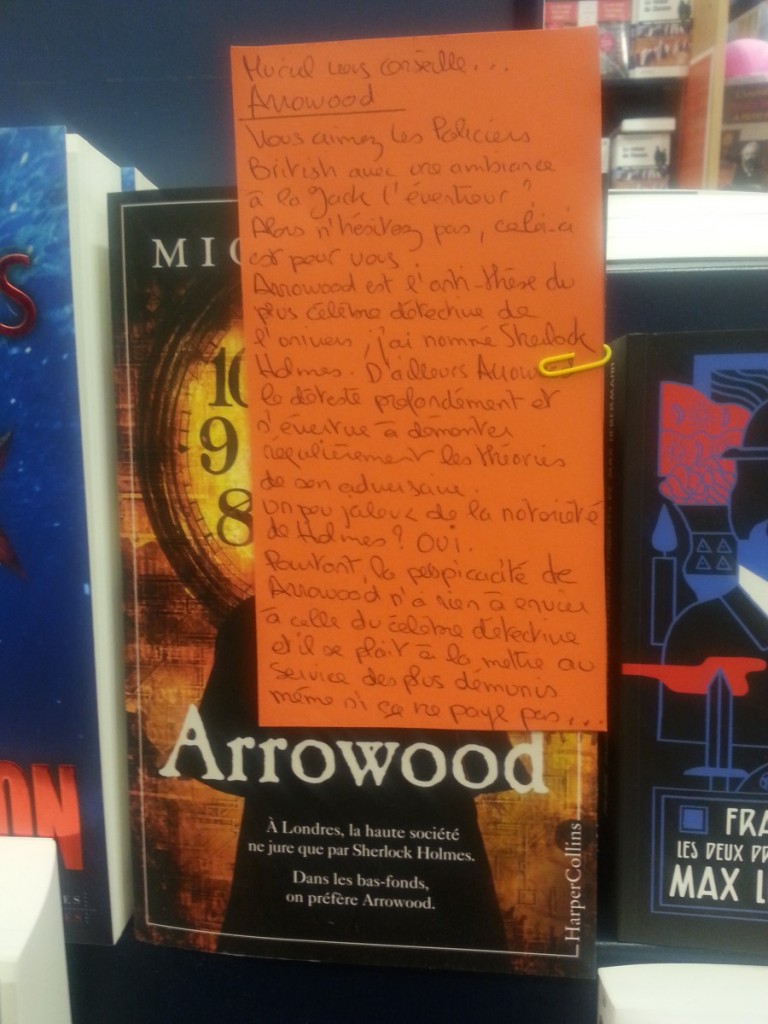 Muriel vous conseille...
Arrowood
Vous aimez les Policiers
British avec une ambiance
à la Jack l'éventreur ?
Alors n'hésitez pas, celui-ci
est pour vous.
Arrowood est l'anti-thèse du
plus célèbre détective de
l'univers, j'ai nommé Sherlock
Holmes. D'ailleurs Arrow
le déteste profondément et
s'évertue à démonter
régulièrement les théories
de son adversaire.
Un peu jaloux de la notoriété
de Holmes ? OUI.
Pourtant, la perspicacité de
Arrowood n'a rien à envier
à celle du célèbre détective
et il se plaît à la mettre au
service des plus démunis
même si ça ne paye pas...
MIC
10
9
8
Arrowood
À Londres, la haute société
ne jure que par Sherlock Holmes.
Dans les bas-fonds,
on préfère Arrowood.
HarperCollins
S
ON
FRA
LES DEUX
MAX L